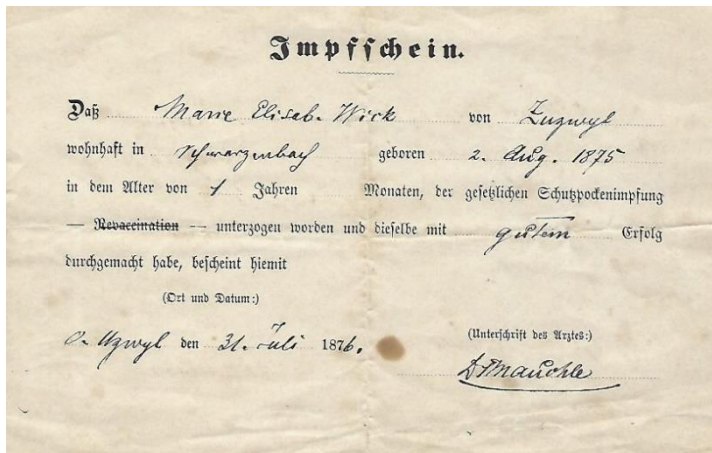 Impfschein.
Daß Marie Elisab. Wick von Zuzwyl
wohnhaft in Schwarzenbach geboren 2. Aug. 1875
in dem Alter von 1 Jahren Monaten, der gesetzlichen Schutzpockenimpfung
— Revaccination — unterzogen worden und dieselbe mit gutem Erfolg
durchgemacht habe, bescheint hiemit
(Ort und Datum:)
O. Uzwyl den 31. Juli 1876.
(Unterschrift des Arztes:)